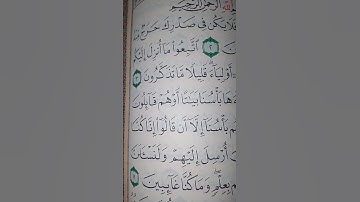 ٱللَّهِ ٱلرَّحْمَٰنِ ٱلرَّحِيمِ
فَلَا يَكُن فِى صَدْرِكَ حَرَجٌ
٢ ٱتَّبِعُوا۟ مَآ أُنزِلَ إِلَيْكُ
أَوْلِيَآءَ ۗ قَلِيلًا مَّا تَذَكَّرُونَ ٣
هَا بَأْسُنَا بَيَٰتًا أَوْ هُمْ قَآئِلُونَ
م بَأْسُنَآ إِلَّآ أَن قَالُوٓا۟ إِنَّا كُنَّا
أُرْسِلَ إِلَيْهِمْ وَلَنَسْـَٔلَنَّ
م بِعِلْمٍ ۖ وَمَا كُنَّا غَآئِبِينَ